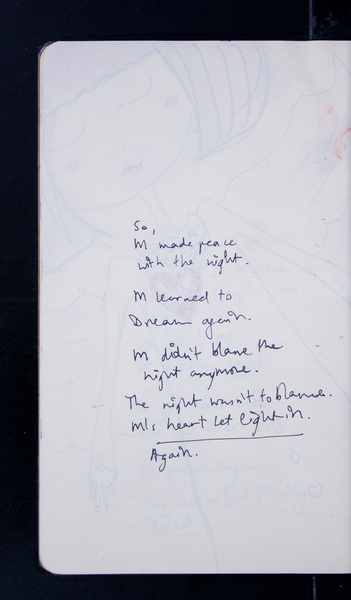 So,
M made peace
with the night.
M learned to
Dream again.
M didn't blame the
night anymore.
The night wasn't to blame.
M's heart let light in.
Again.